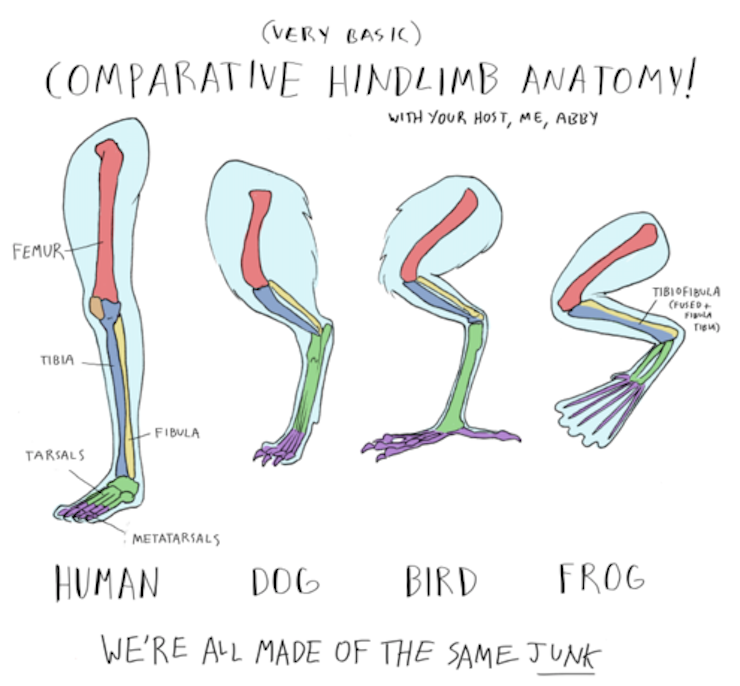 (VERY BASIC)
COMPARATIVE HINDLIMB ANATOMY!
WITH YOUR HOST, ME, ABBY
FEMUR
TIBIA
FIBULA
TARSALS
METATARSALS
TIBIOFIBULA
(FUSED +
FIBULA
TIBIA)
HUMAN DOG BIRD FROG
WE'RE ALL MADE OF THE SAME JUNK